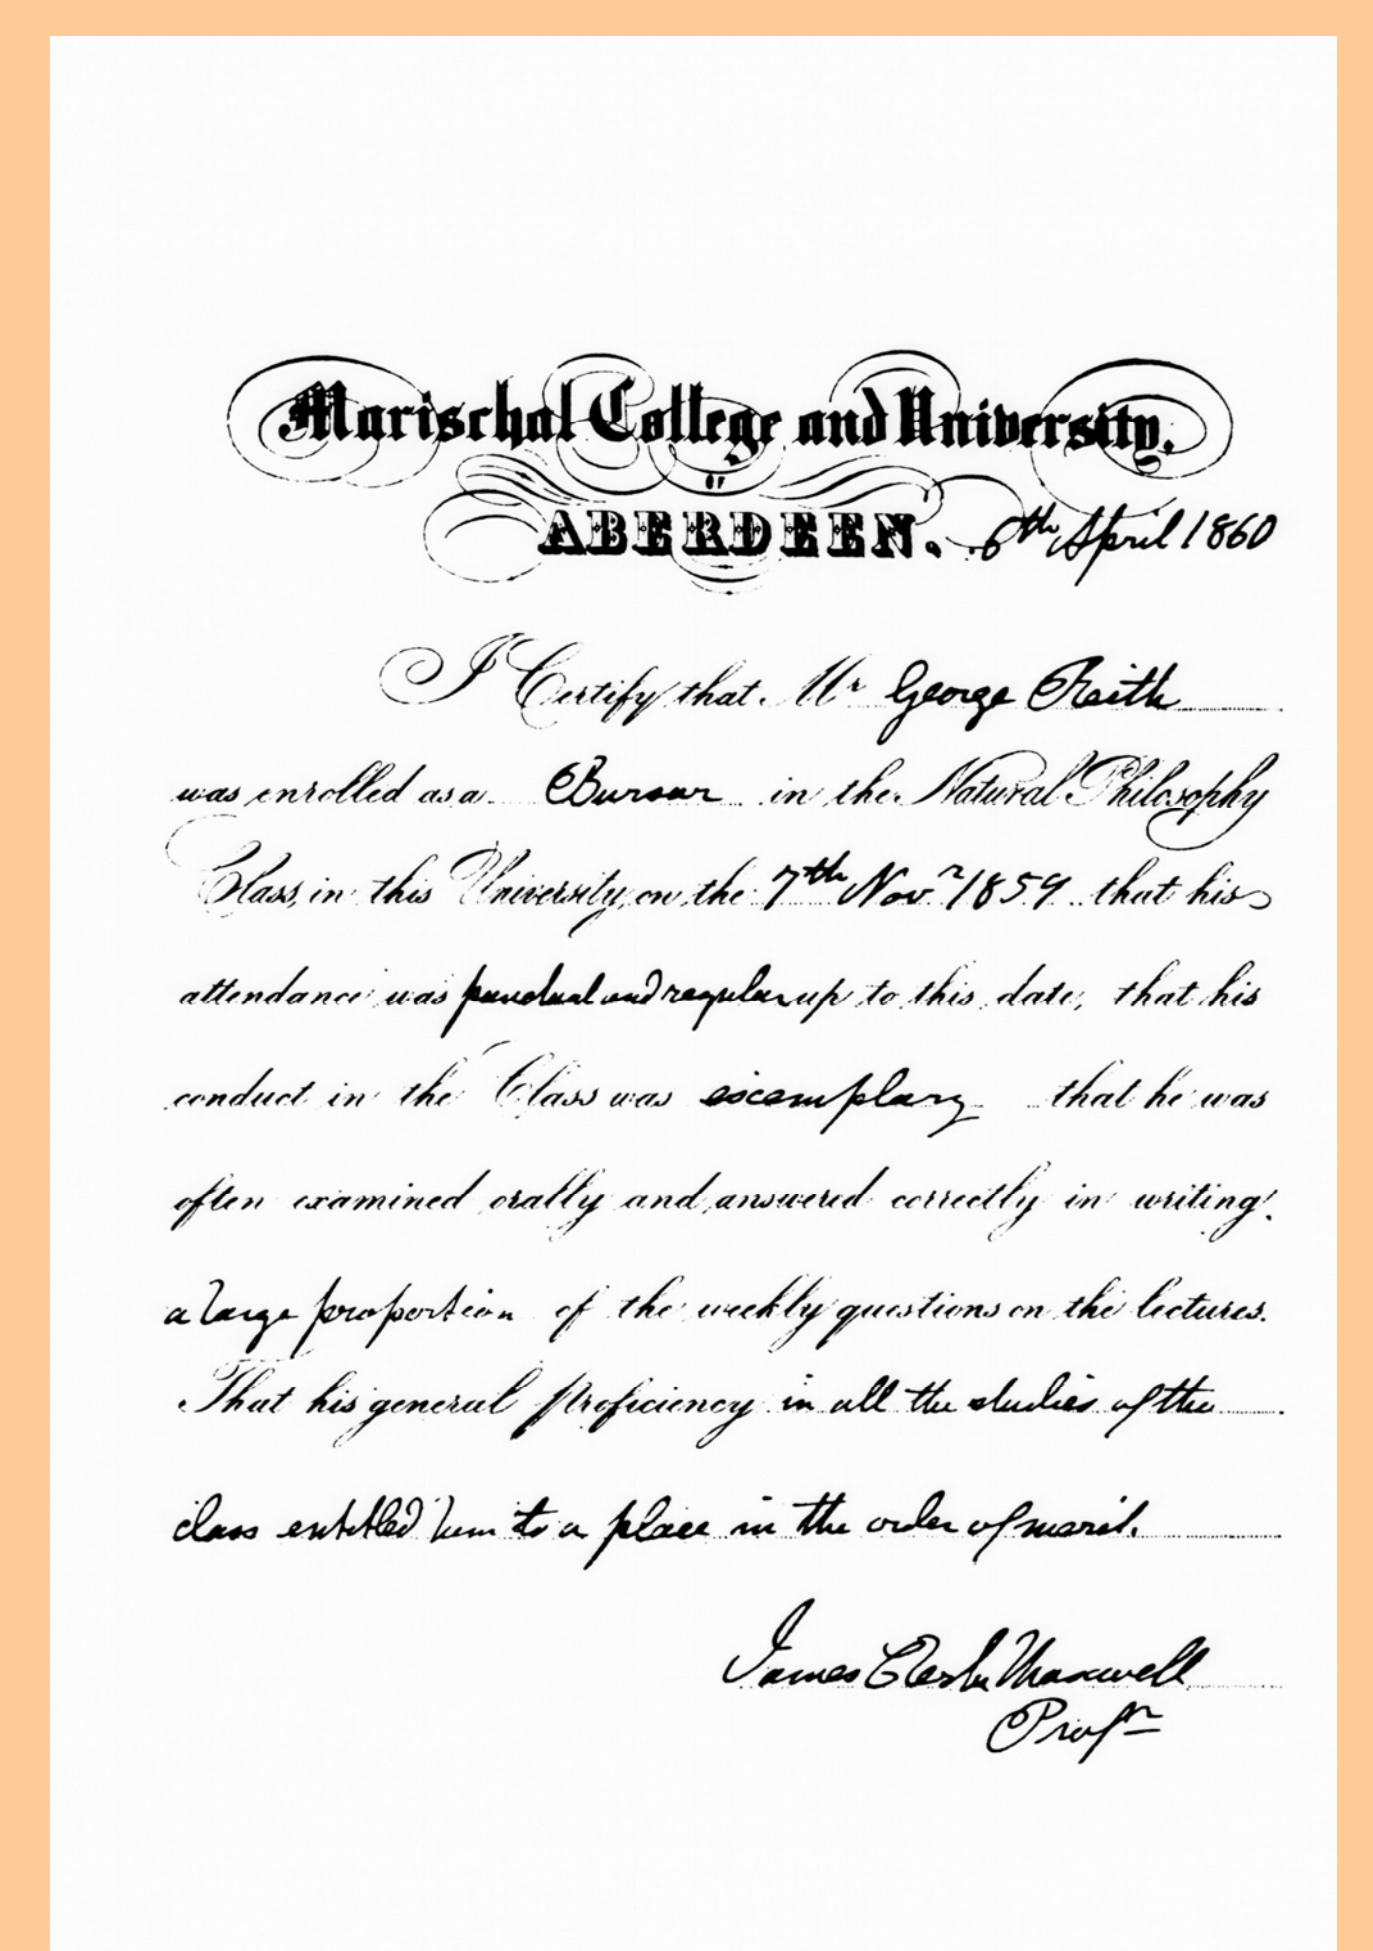 Marischal College and University,
OF
ABERDEEN. 6th April 1860
I Certify that Mr George Reith
was enrolled as a Bursar in the Natural Philosophy
Class, in this University, on the 7th Novr 1859 that his
attendance was punctual and regular up to this date, that his
conduct in the Class was exemplary that he was
often examined orally and answered correctly in writing,
a large proportion of the weekly questions on the lectures.
That his general proficiency in all the studies of the
class entitled him to a place in the order of merit.
James Clerk Maxwell
Profr